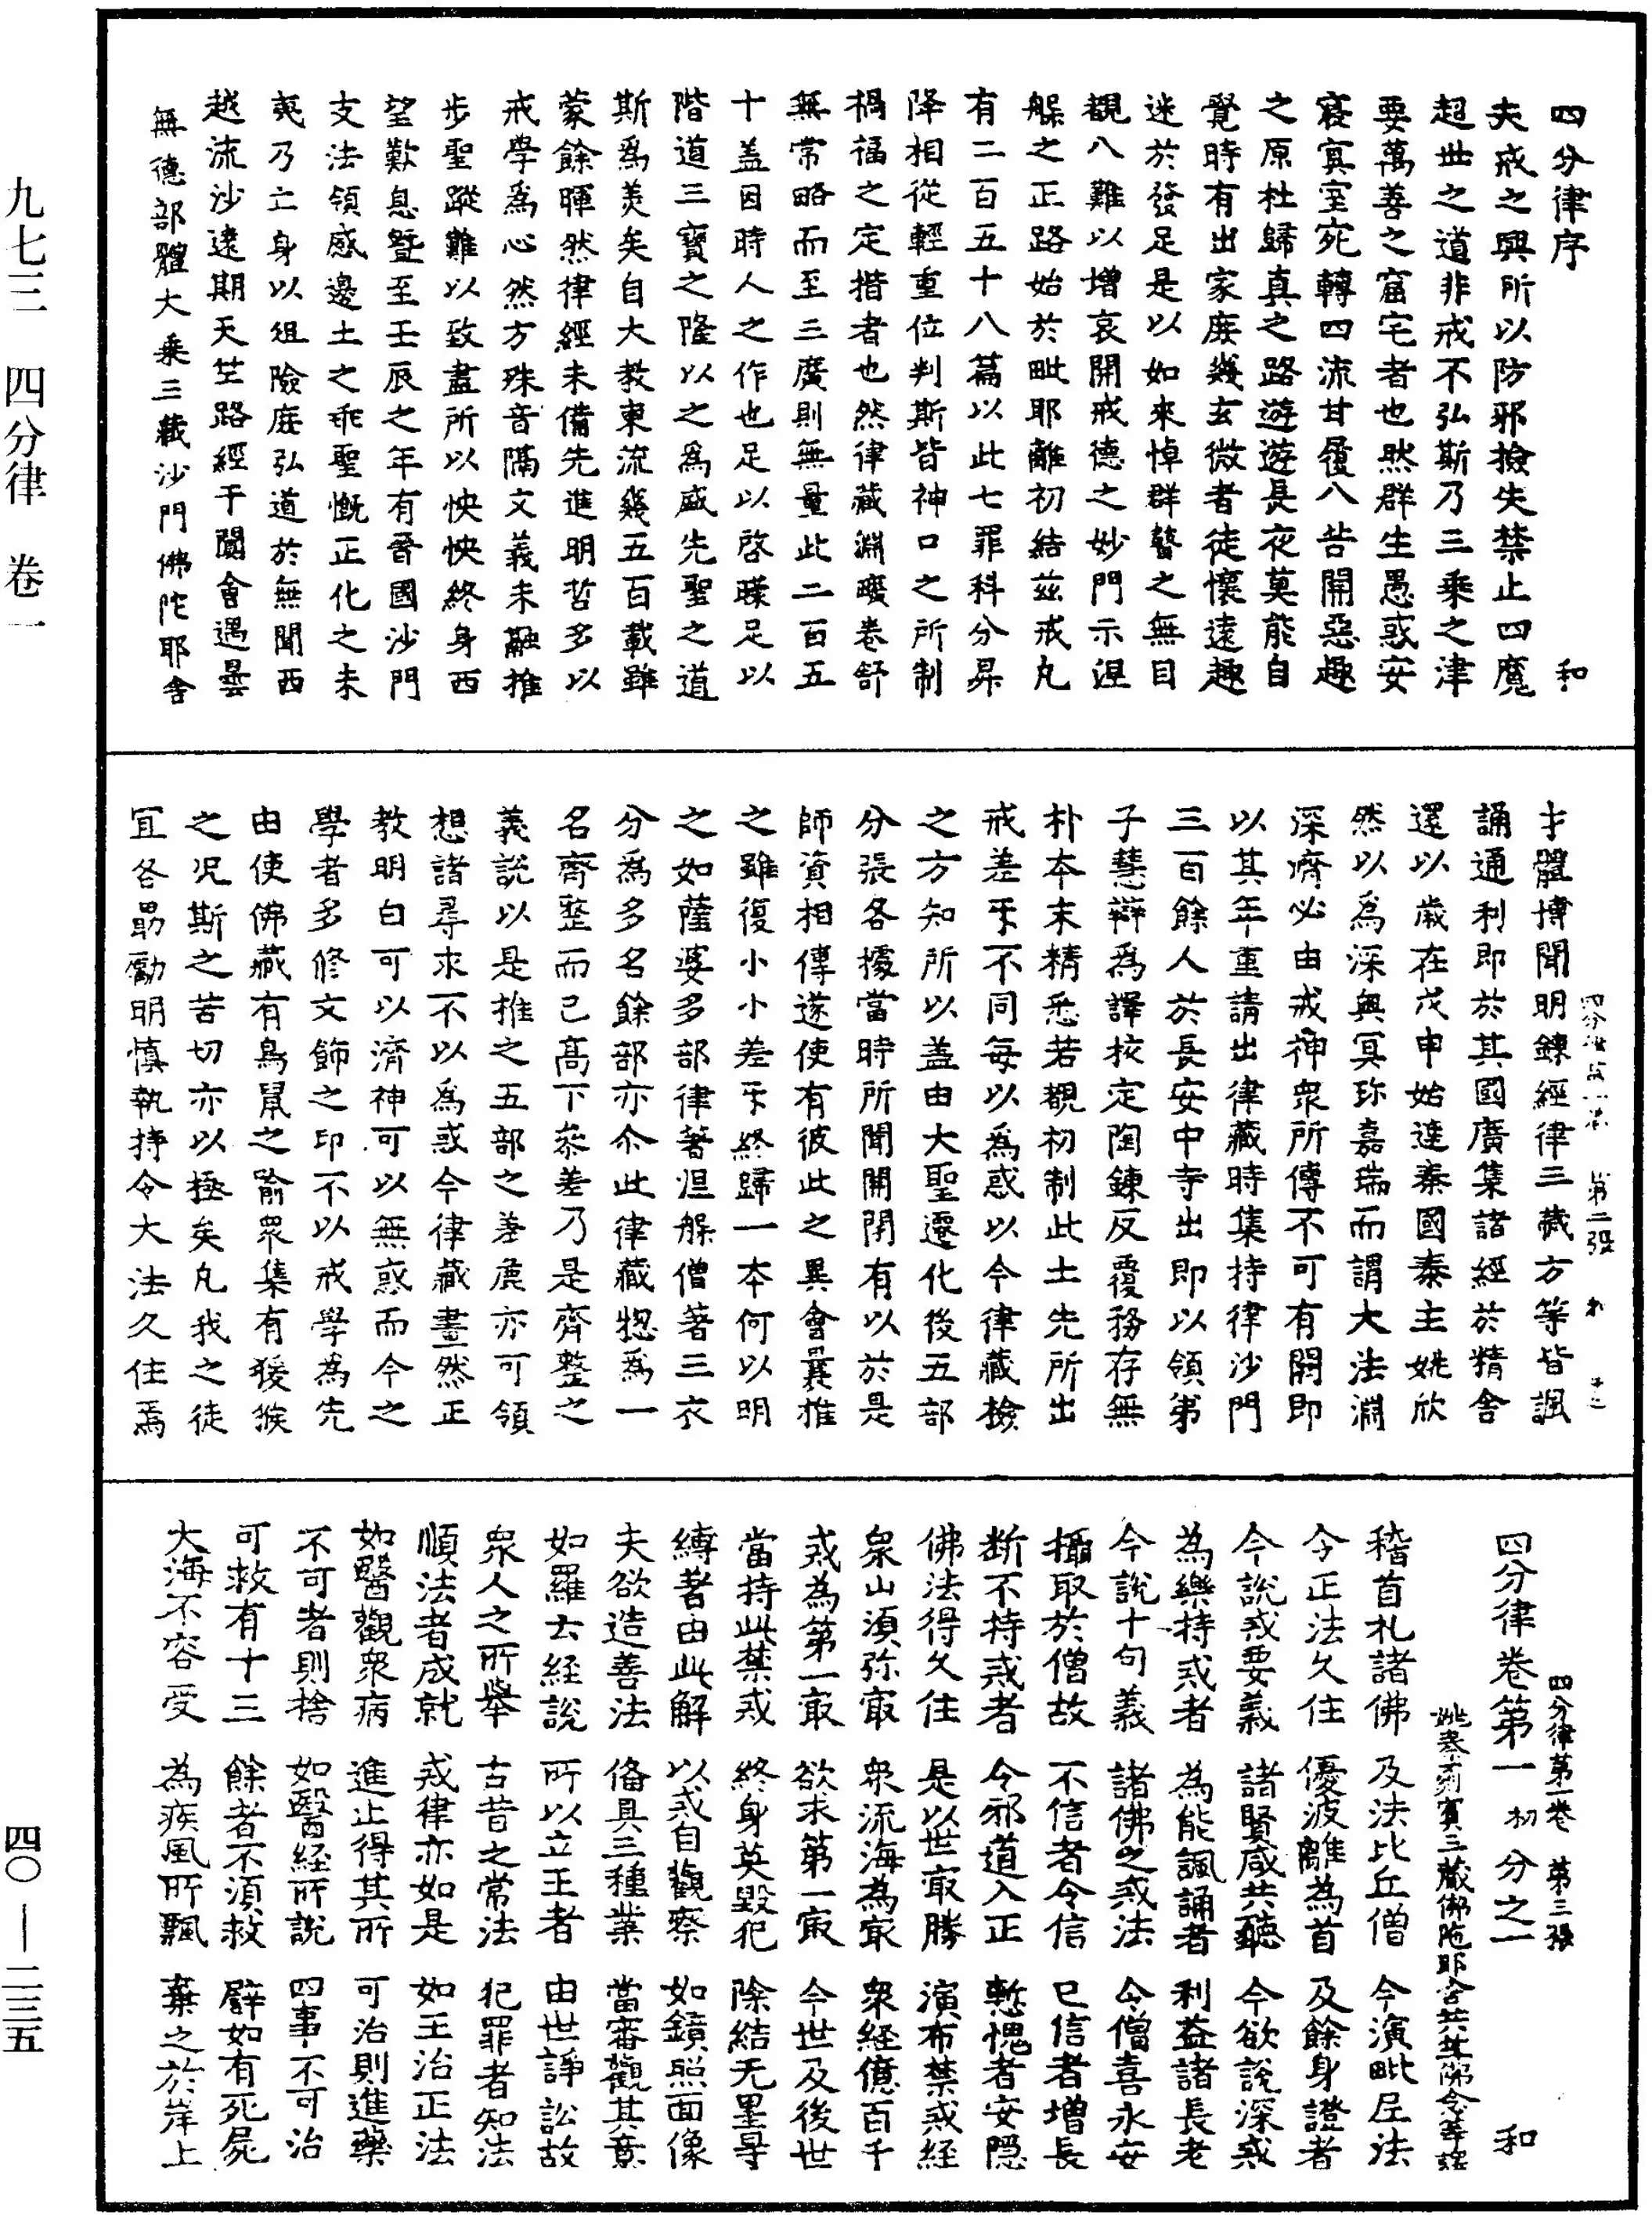 四分律序　和
夫戒之興所以防邪撿失禁止四魔
超世之道非戒不弘斯乃三乗之津
要萬善之窟宅者也然群生愚惑安
寢冥室宛轉四流甘履八苦開惡趣
之原杜歸真之路遊遊長夜莫能自
覺時有出家庶幾玄微者徒懷遠趣
迷於發足是以如來悼群瞽之無目
覩八難以增哀開戒德之妙門示涅
槃之正路始於毗耶離初結兹戒凡
有二百五十八篇以此七罪科分昇
降相從輕重位判斯皆神口之所制
禍福之定楷者也然律藏淵曠卷舒
無常略而至三廣則無量此二百五
十盖因時人之作也足以啓矇足以
階道三寶之隆以之為盛先聖之道
斯為美矣自大教東流幾五百載雖
蒙餘暉然律經未備先進明哲多以
戒學為心然方殊音隔文義未融推
步聖蹤難以致盡所以怏怏終身西
望歎息暨至壬辰之年有晉國沙門
支法領感邊土之乖聖慨正化之未
夷乃亡身以俎險庶弘道於無聞西
越流沙遠期天竺路經于闐會遇曇
無德部體大乗三藏沙門佛陀耶舍
才體博聞明鍊經律三藏方等皆諷
誦通利即於其國廣集諸經於精舍
還以歳在戊申始達秦國秦主姚欣
然以為深奥冥珎嘉瑞而謂大法淵
深濟必由戒神衆所傳不可有闕即
以其年重請出律藏時集持律沙門
三百餘人於長安中寺出即以領弟
子慧辯為譯挍定陶鍊反覆務存無
朴本末精悉若覩初制此土先所出
戒差㸦不同每以為惑以今律藏撿
之方知所以盖由大聖遷化後五部
分張各據當時所聞開閉有以於是
師資相傳遂使有彼此之異會曩推
之雖復小小差㸦終歸一本何以明
之如薩婆多部律著涅槃僧著三衣
分為多名餘部亦尒此律藏惣為一
名齊整而已高下叅差乃是齊整之
義說以是推之五部之差廣亦可領
想諸尋求不以為惑今律藏畫然正
教明白可以濟神可以無惑而今之
學者多修文飾之印不以戒學為先
由使佛藏有鳥鼠之喻衆集有猨猴
之况斯之苦切亦以極矣凡我之徒
冝各勗勵明慎執持令大法久住焉
四分律第一卷　第三張　和
四分律卷第一　初分之一
姚秦罽賓三藏佛陁耶舍共竺佛念等譯
稽首礼諸佛　及法比丘僧　今演毗尼法
令正法久住　優波離為首　及餘身證者
今說戒要義　諸賢咸共聽　今欲說深戒
為樂持戒者　為能諷誦者　利益諸長老
今說十句義　諸佛之戒法　令僧喜永安
攝取於僧故　不信者令信　已信者增長
断不持戒者　令邪道入正　慙愧者安隱
佛法得久住　是以世冣勝　演布禁戒經
衆山須弥冣　衆流海為冣　衆經億百千
戒為第一冣　欲求第一冣　今世及後世
當持此禁戒　終身莫毀犯　除結无罣㝵
縛著由此解　以戒自觀察　如鏡照面像
夫欲造善法　俻具三種業　當審觀其意
如羅云経說　所以立王者　由世諍訟故
衆人之所舉　古昔之常法　犯罪者知法
順法者成就　戒律亦如是　如王治正法
如醫觀衆病　進止得其所　可治則進藥
不可者則捨　如醫経所說　四事不可治
可救有十三　餘者不須救　譬如有死屍
大海不容受　為疾風所飄　棄之於岸上
九七三　四分律　卷一
四〇—二三五